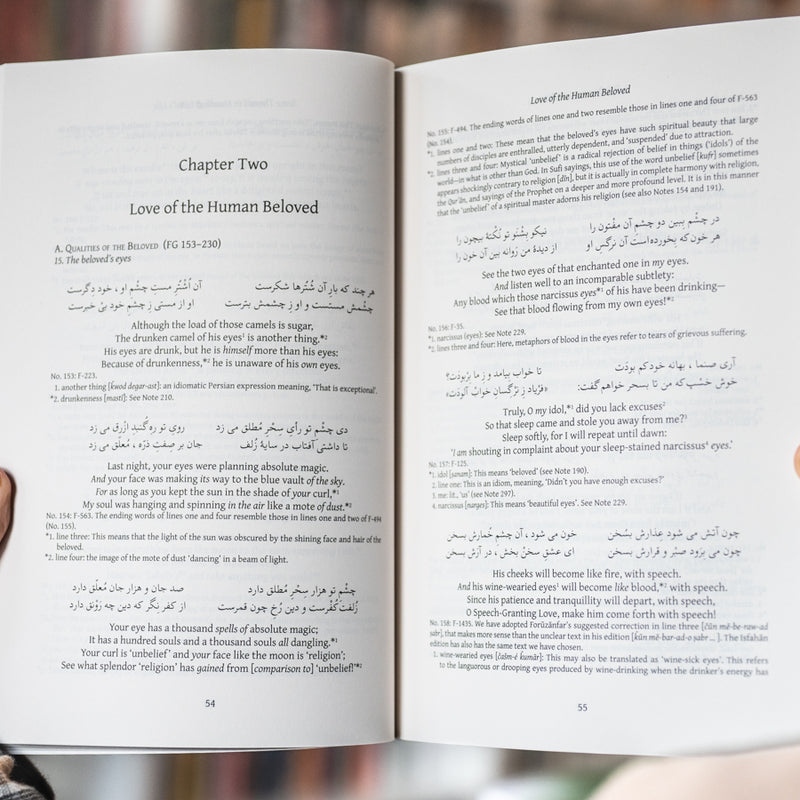 Chapter Two
Love of the Human Beloved
A. Qualities of the Beloved (FG 153–230)
15. The beloved's eyes
هر چند که بارِ آن شُتُرها شکرست
آن اُشْتُر مستِ چشمِ او، خود دِگرست
چشمش مستست و او زِ چشمش بترست
او از مستی زِ چشمِ خود بی‌ خبرست
Although the load of those camels is sugar,
The drunken camel of his eyes¹ is another thing.*²
His eyes are drunk, but he is himself more than his eyes:
Because of drunkenness,*² he is unaware of his own eyes.
No. 153: F-223.
1. another thing [ḱwod degar-ast]: an idiomatic Persian expression meaning, 'That is exceptional'.
*2. drunkenness [mastī]: See Note 210.
دی چشمِ تو رأیِ سِحْرِ مُطلق می زد
رویِ تو ره گُنبدِ ازْرق می زد
تا داشتی آفتاب در سایهٔ زُلف
جان بر صِفتِ ذرّه، مُعلّق می زد
Last night, your eyes were planning absolute magic.
And your face was making its way to the blue vault of the sky.
For as long as you kept the sun in the shade of your curl,*¹
My soul was hanging and spinning in the air like a mote of dust.*²
No. 154: F-563. The ending words of lines one and four resemble those in lines one and two of F-494
(No. 155).
*1. line three: This means that the light of the sun was obscured by the shining face and hair of the
beloved.
*2. line four: the image of the mote of dust 'dancing' in a beam of light.
چشمِ تو هزار سِحْرِ مُطلق دارد
صد جان و هزار جان مُعلّق دارد
زُلفت کُفرست و دین رُخِ چون قمرست
از کفر نِگر که دین چه رَوْنق دارد
Your eye has a thousand spells of absolute magic;
It has a hundred souls and a thousand souls all dangling.*¹
Your curl is 'unbelief' and your face like the moon is 'religion';
See what splendor 'religion' has gained from [comparison to] 'unbelief!'*²
54
Love of the Human Beloved
No. 155: F-494. The ending words of lines one and two resemble those in lines one and four of F-563
(No. 154).
*1. lines one and two: These mean that the beloved's eyes have such spiritual beauty that large
numbers of disciples are enthralled, utterly dependent, and 'suspended' due to attraction.
*2. lines three and four: Mystical 'unbelief' is a radical rejection of belief in things ('idols') of the
world—in what is other than God. In Sufi sayings, this use of the word unbelief [kufr] sometimes
appears shockingly contrary to religion [dīn], but it is actually in complete harmony with religion,
the Qur'ān, and sayings of the Prophet on a deeper and more profound level. It is in this manner
that the 'unbelief' of a spiritual master adorns his religion (see also Notes 154 and 191).
در چشمِ ببین دو چشمِ آن مفْتون را
نیکو بِشْنو تو نُکتهٔ بیچون را
هر خون که بِخورده است آن نرگسِ او
از دیدهٔ من رَوانه بین آن خون را
See the two eyes of that enchanted one in my eyes.
And listen well to an incomparable subtlety:
Any blood which those narcissus eyes*¹ of his have been drinking—
See that blood flowing from my own eyes!*²
No. 156: F-35.
*1. narcissus (eyes): See Note 229.
*2. lines three and four: Here, metaphors of blood in the eyes refer to tears of grievous suffering.
آری صنما، بهانه خود کم بودت
تا خواب بیامد و ز ما بِرْبودت؟
خوش خُسْپ که من تا بسحر خواهم گفت:
«فریاد زِ نرْگسانِ خواب آلودت»
Truly, O my idol,*¹ did you lack excuses²
So that sleep came and stole you away from me?³
Sleep softly, for I will repeat until dawn:
'I am shouting in complaint about your sleep-stained narcissus⁴ eyes.'
No. 157: F-125.
*1. idol [ṣanam]: This means 'beloved' (see Note 190).
2. line one: This is an idiom, meaning, 'Didn't you have enough excuses?'
3. me: lit., 'us' (see Note 297).
4. narcissus [narges]: This means 'beautiful eyes'. See Note 229.
چون آتش می شود عِذارش بسُخن
خون می شود، آن چشمِ خُمارش بسخن
چون می بِرَود صبْر و قرارش بسخن
ای عشقِ سخنْ بخش، در آرَش بسخن
His cheeks will become like fire, with speech.
And his wine-wearied eyes¹ will become like blood,*² with speech.
Since his patience and tranquillity will depart, with speech,
O Speech-Granting Love, make him come forth with speech!
No. 158: F-1435. We have adopted Forūzānfar's suggested correction in line three [čūn mē-be-raw-ad
ṣabr], that makes more sense than the unclear text in his edition [ḱūn mē-bar-ad-o ṣabr ... ]. The Isfahān
edition has also has the same text we have chosen.
1. wine-wearied eyes [čašm-é ḱumār]: This may also be translated as 'wine-sick eyes'. This refers
to the languorous or drooping eyes produced by wine-drinking when the drinker's energy has
55